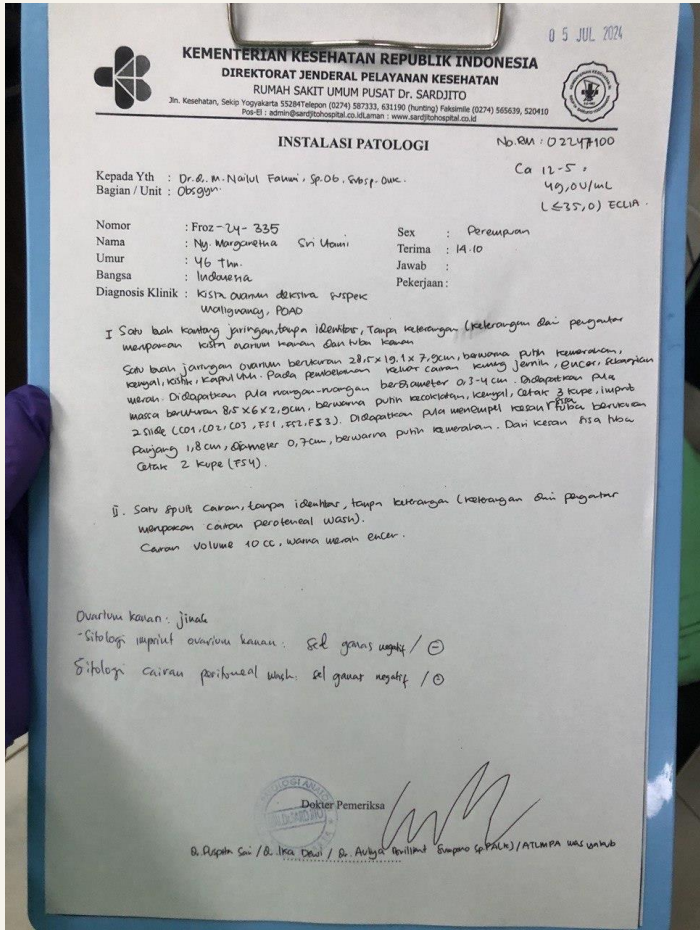 05 JUL 2024
KEMENTERIAN KESEHATAN REPUBLIK INDONESIA
DIREKTORAT JENDERAL PELAYANAN KESEHATAN
RUMAH SAKIT UMUM PUSAT Dr. SARDJITO
Jln. Kesehatan, Sekip Yogyakarta 55284Telepon (0274) 587333, 631190 (hunting) Faksimile (0274) 565639, 520410
Pos-El : admin@sardjitohospital.co.idLaman : www.sardjitohospital.co.id
INSTALASI PATOLOGI
No.RM : 02247100
Ca 12-5 :
49,0 U/mL
(≤35,0) ECLIA.
Kepada Yth : Dr.dr. M. Nailul Fahmi, Sp.OG, Subsp.Onk.
Bagian / Unit : Obsgyn.
Nomor : Froz-24-335
Nama : Ny. Margaretha Sri Utami
Umur : 46 Thn.
Bangsa : Indonesia
Diagnosis Klinik : Kista ovarium dekstra suspek
malignancy, POAD
Sex : Perempuan
Terima : 14.10
Jawab :
Pekerjaan :
I Satu buah kantong jaringan, tanpa identitas, Tanpa keterangan (keterangan dari pengantar
merupakan kista ovarium kanan dan tuba kanan
Satu buah jaringan ovarium berukuran 28,5x19,1x7,9cm, berwarna putih kemerahan,
kenyal, kistik, kapsul utuh. Pada pembelahan keluar cairan kuning jernih, encer, sebagian
merah. Didapatkan pula ruangan-ruangan berdiameter 0,3-4cm. Didapatkan pula
massa berukuran 8,5x6x2,9cm, berwarna putih kecoklatan, kenyal, cetak 3 kupe, imprint
2 slide (CO1, CO2, CO3, FS1, FS2, FS3). Didapatkan pula menempel kesan fisa tuba berukuran
Panjang 1,8cm, diameter 0,7cm, berwarna putih kemerahan. Dari kesan fisa tuba
Cetak 2 kupe (FS4).
II. Satu spuit cairan, tanpa identitas, tanpa keterangan (keterangan dari pengantar
merupakan cairan peritoneal wash).
Cairan volume 10cc, warna merah encer.
Ovarium kanan : jinak
-Sitologi imprint ovarium kanan : Sel ganas negatif / (-)
Sitologi cairan peritoneal wash : sel ganas negatif / (-)
Dokter Pemeriksa
Dr. Puspita Sari / Dr. Ika Dewi / Dr. Auliya